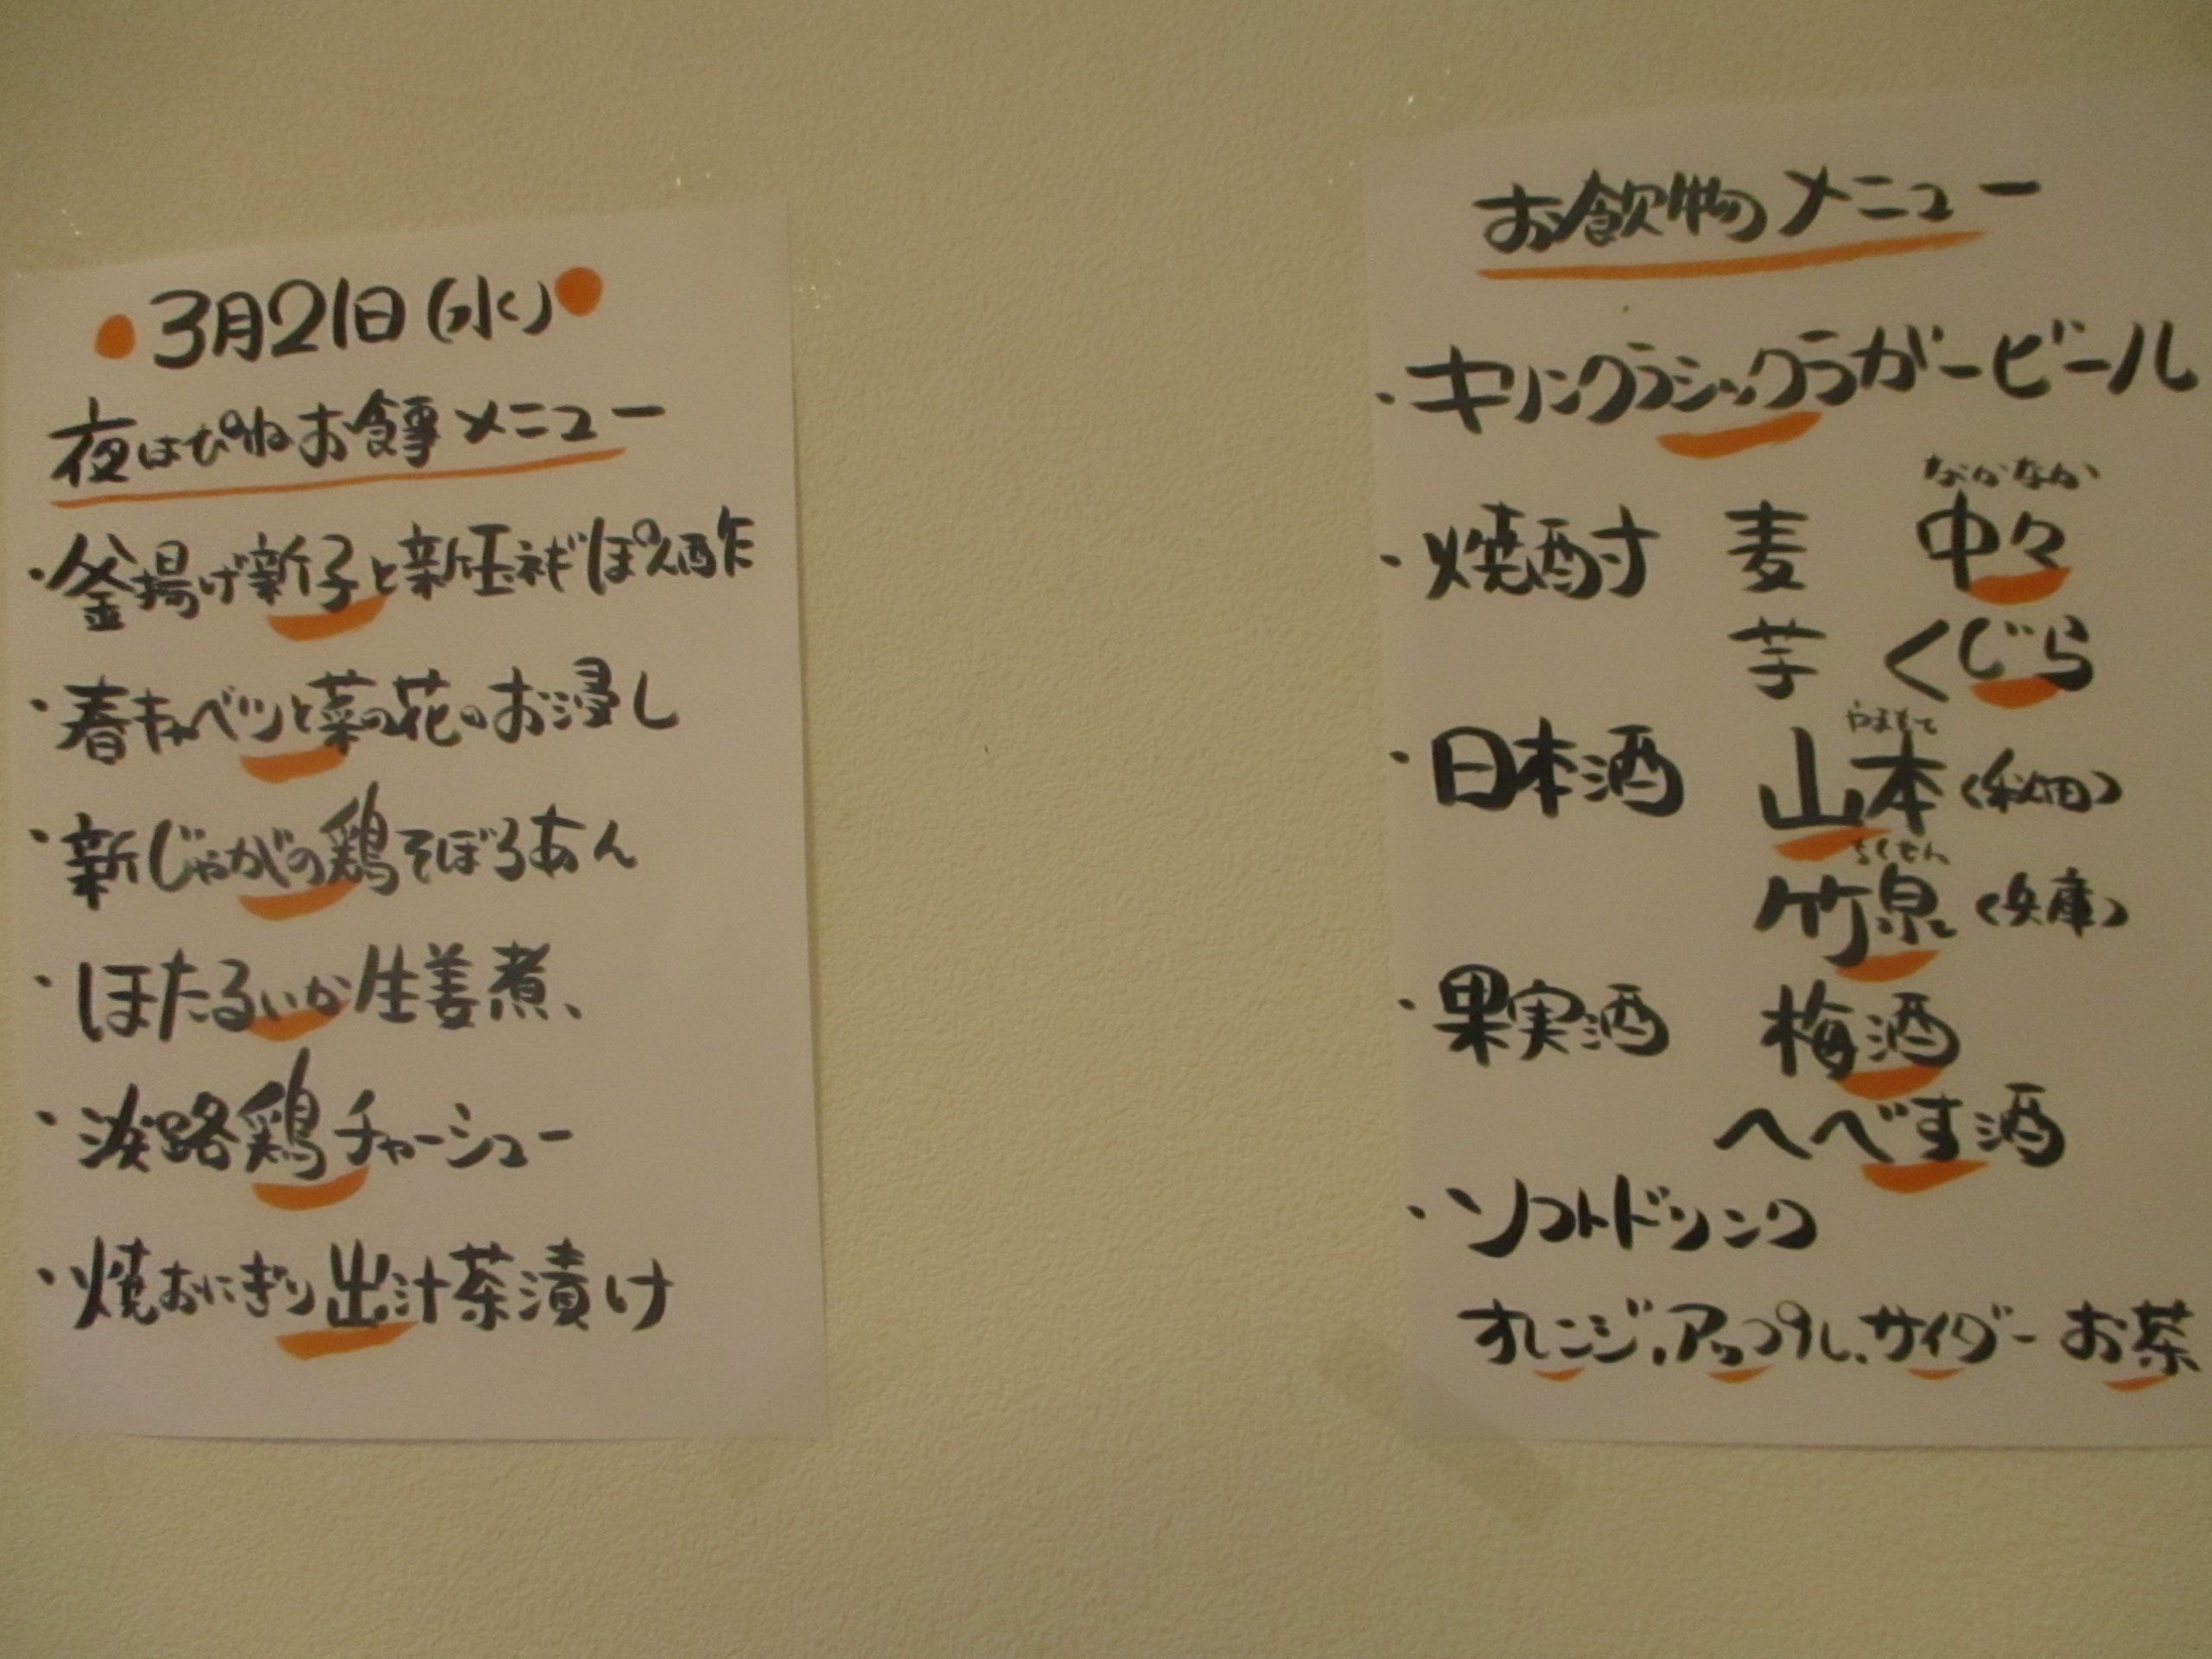 3月21日(水)
夜はぴねお食事メニュー
・釜揚げ新子と新玉ネギぽん酢
・春キャベツと菜の花のお浸し
・新じゃがの鶏そぼろあん
・ほたるいか生姜煮、
・淡路鶏チャーシュー
・焼おにぎり出汁茶漬け
お飲物メニュー
・キリンクラシックラガービール
なかなか
・焼酎 麦 中々
芋 くじら
やまもと
・日本酒 山本(秋田)
ちくせん
竹泉(兵庫)
・果実酒 梅酒
へべす酒
・ソフトドリンク
オレンジ、アップル、サイダー お茶